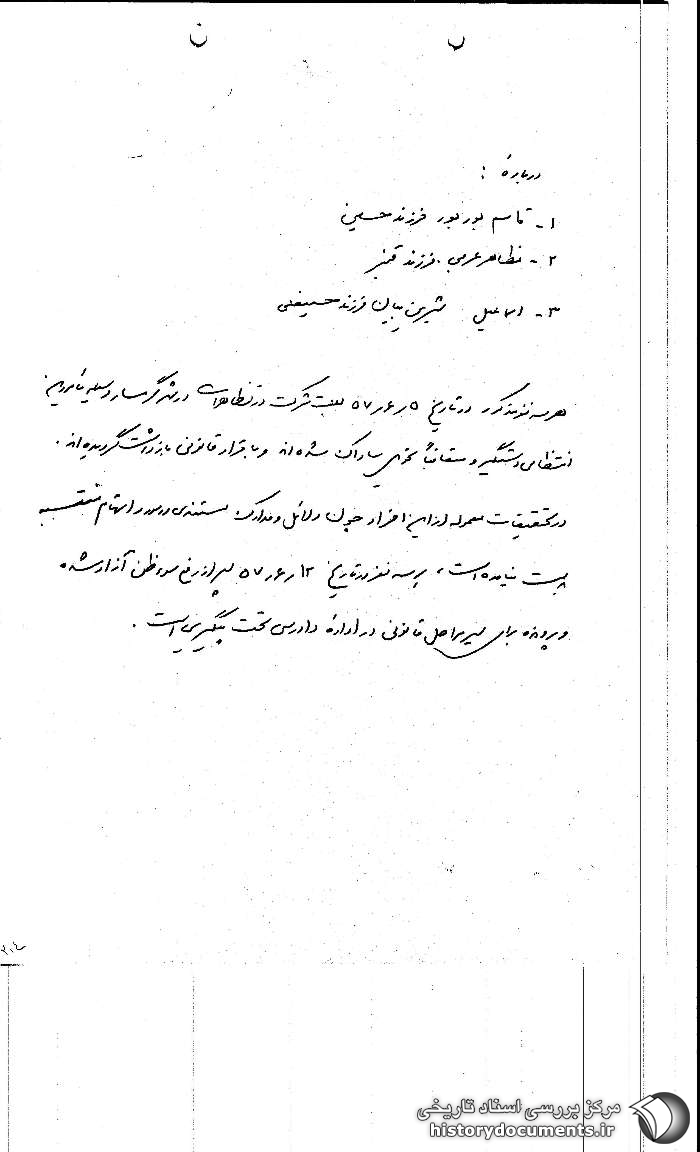 درباره :
۱- قاسم پور پور فرزند حسین
۲- نظام عربی . فرزند قنبر
۳- اسماعیل شیرین بیان فرزند حسینعلی
هر سه نفر مذکور در تاریخ ۵ ر ۶ ر ۵۷ بعلت شرکت در تظاهرات در شهر گرمسار وسیله مامورین
انتظامی دستگیر و متعاقباً تحویل ساواک شده اند و با قرار قانونی بازداشت گردیده اند .
در تحقیقات معموله از این افراد چون دلائل و مدارک مستندی در مورد اتهام منتسبه
بدست نیامده است ، هر سه نفر در تاریخ ۱۲ ر ۶ ر ۵۷ پس از رفع سوءظن آزاد شده
و پرونده برای سیر مراحل قانونی در اداره دادرسی تحت پیگیری است .
مرکز بررسی اسناد تاریخی
historydocuments.ir